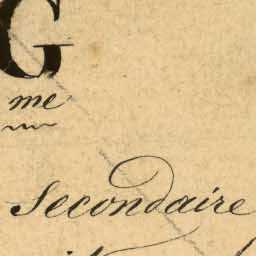 G
me
Secondaire